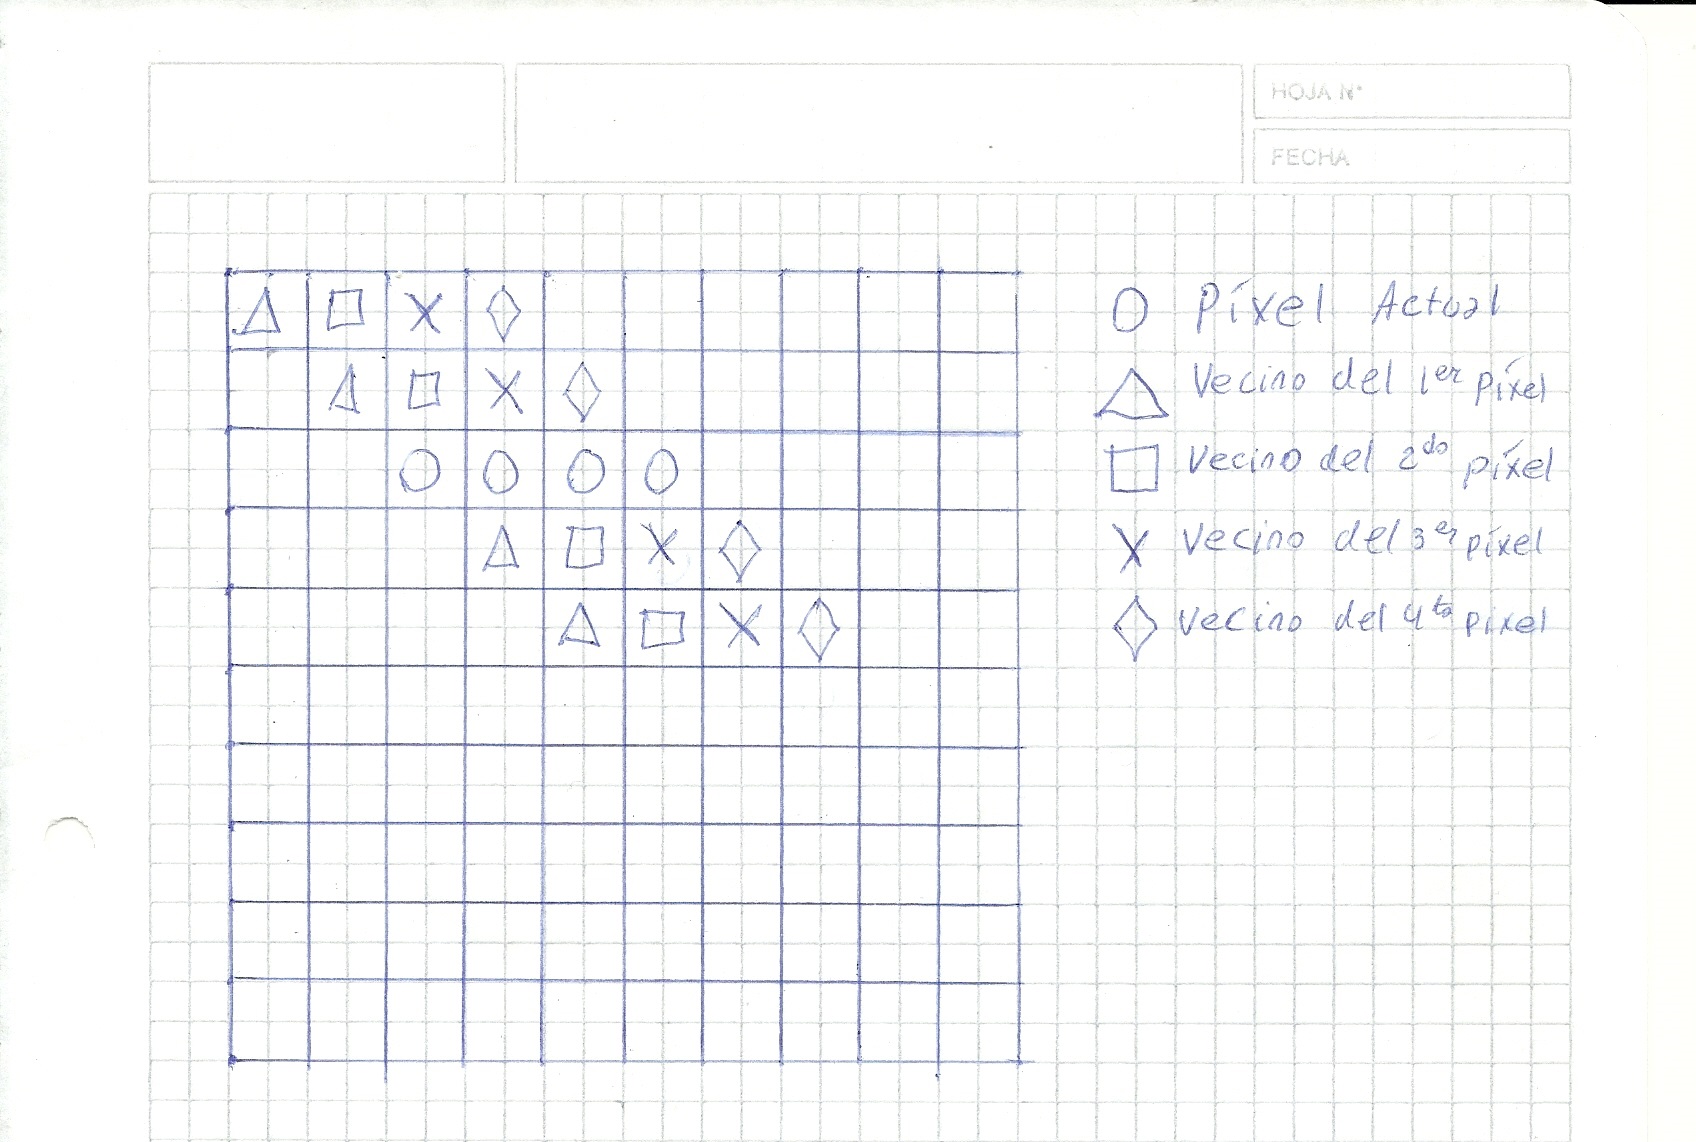 HOJA N°
FECHA
Píxel Actual
Vecino del 1er píxel
Vecino del 2do píxel
Vecino del 3er píxel
Vecino del 4to pixel